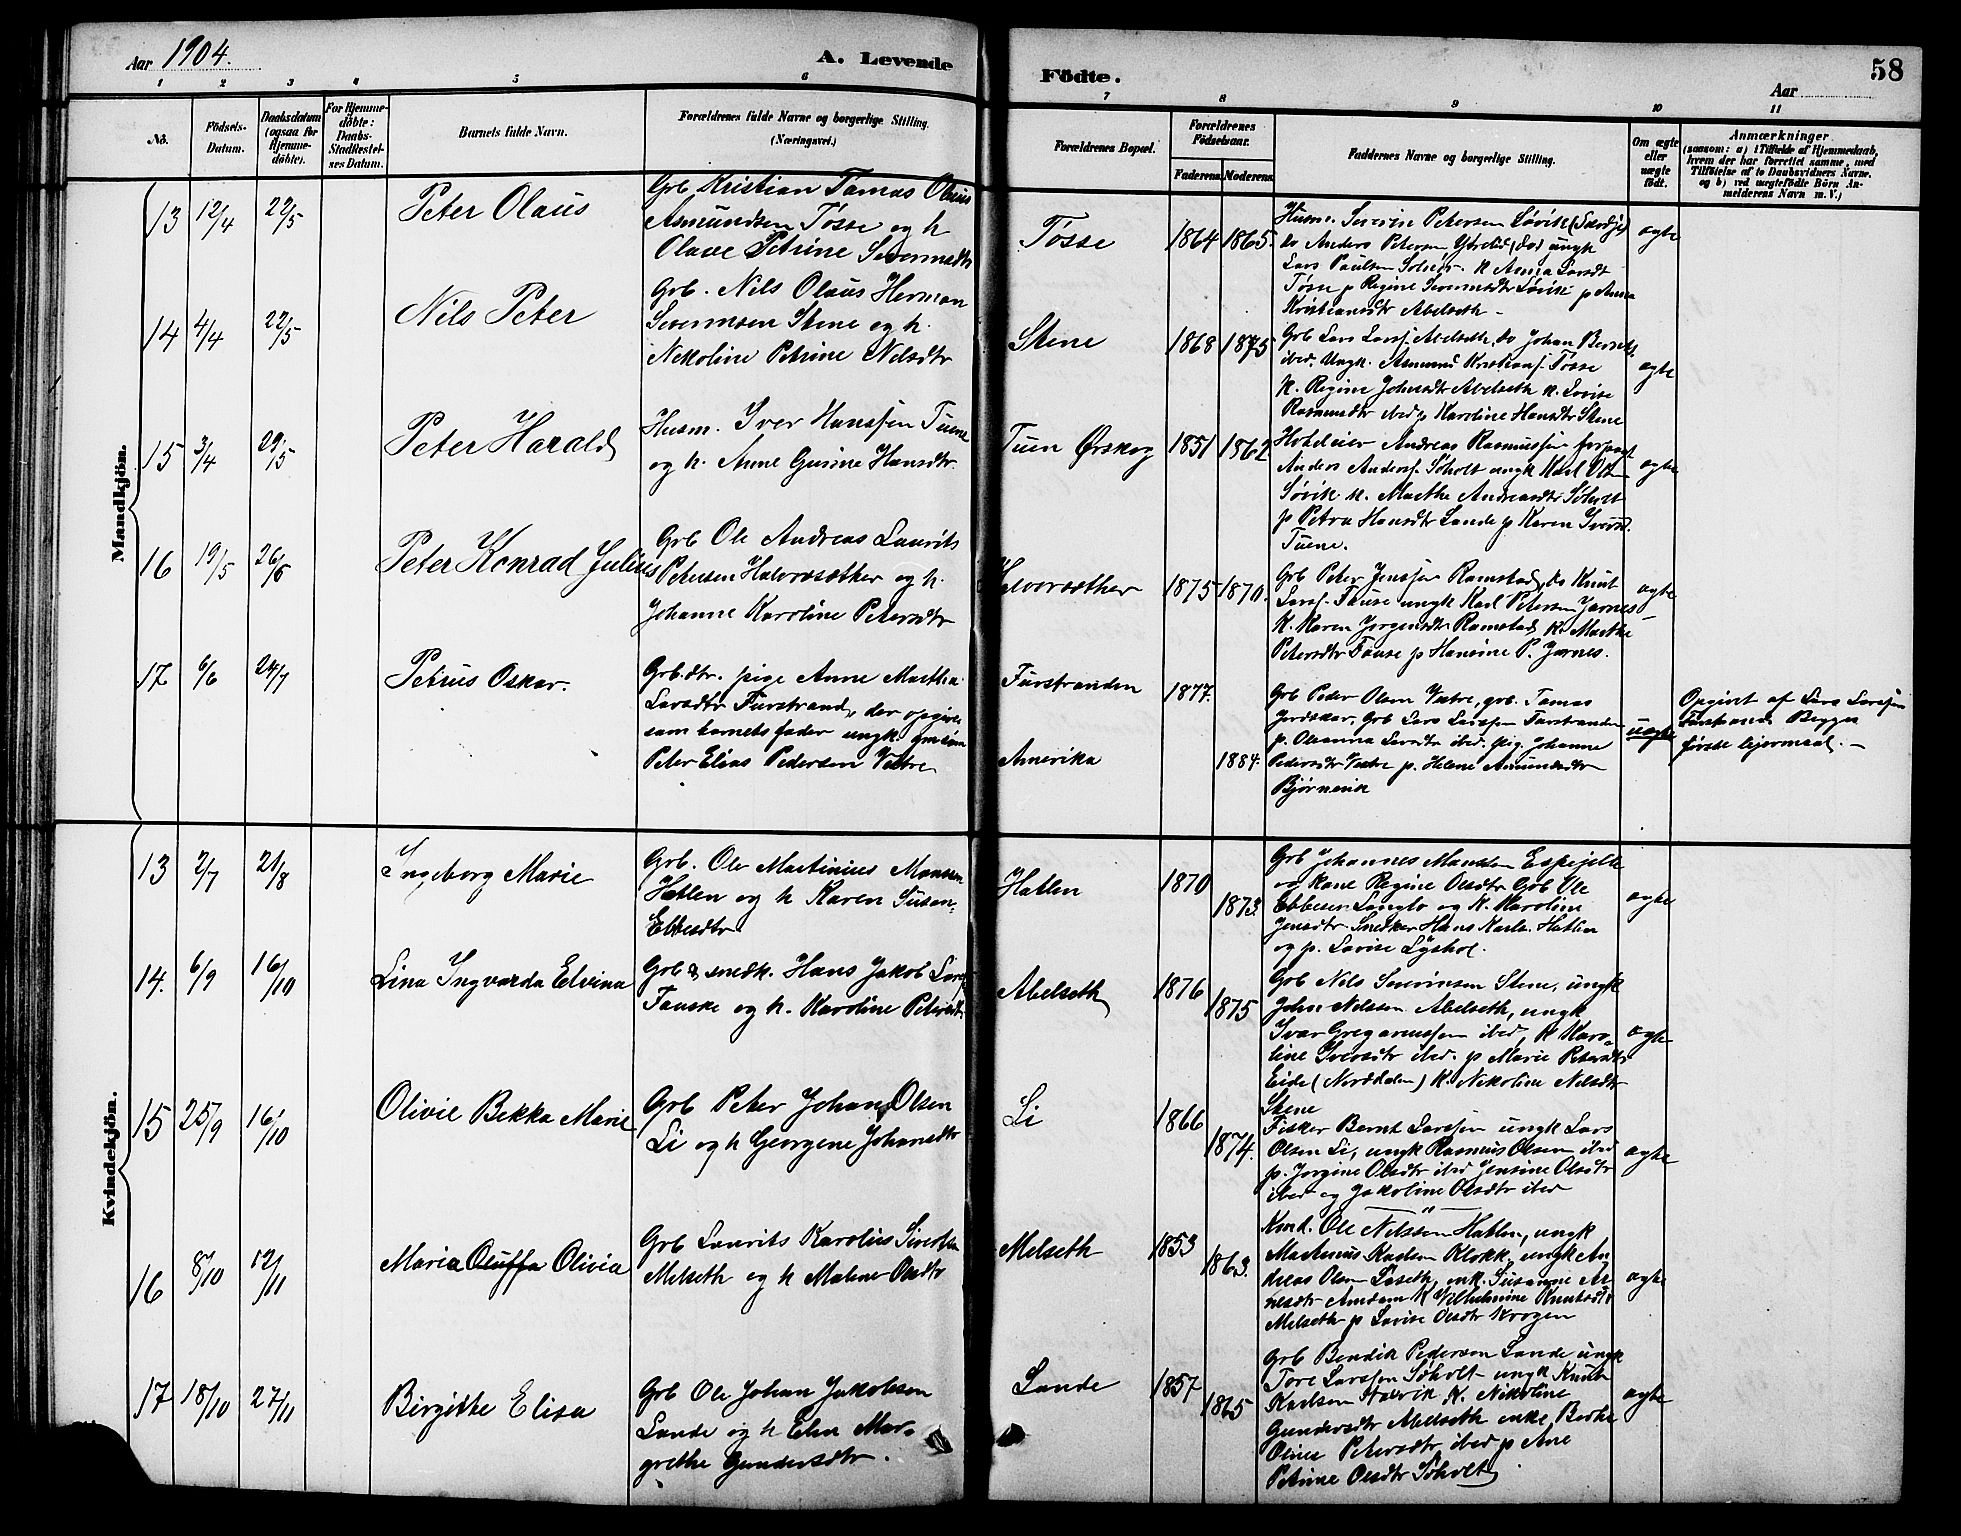 Aar 1904.
A. Levende
Födte.
58
Aar
1 2 3 4 5 6 7 8 9 10 11
No.
Födsels-
Datum.
Daabsdatum
(ogsaa for
Hjemme-
döbte).
For Hjemme-
döbte:
Daabs-
Stadfæstel-
ses Datum.
Barnets fulde Navn.
Forældrenes fulde Navne og borgerlige Stilling.
(Næringsvei.)
Forældrenes Bopæl.
Forældrenes
Födselsaar.
Faderens.
Moderens.
Faddernes Navne og borgerlige Stilling.
Om ægte
eller
uægte
födt.
Anmærkninger
(saasom: a) i Tilfælde af Hjemmedaab,
hvem der har forrettet samme, med
Tilföielse af to Daabsvidners Navne,
og b) ved uægtefödte Börn An-
melderens Navn m. V.)
Mandkjön.
13 12/4 22/5
Peter Olaus
Grb Kristian Tomas Olaus
Asmundsen Tøsse og h
Olave Petrine Severinsdtr
Tøsse
1864 1865.
Husm. Severin Petersen Løvik
do Anders Petersen ungk
Lars Paulsen Solnør k Anna Larsdt
Tøsse p Regine Severinsdtr Løvik p Anna
Kristiansdtr Abelseth
ægte
14 4/4 22/5
Nils Peter
Grb. Nils Olaus Herman
Severinsen Stene og h.
Nikoline Petrine Nilsdtr
Stene
1868 1875
Grb Lars Larss. Abelseth, do Johan Bernts.
ibed. Ungk. Asmund Kristians. Tøsse
k. Regine Johnsdtr Abelseth k. Lovise
Rasmusdtr ibed p Karoline Hansdtr Stene
ægte
15 3/4 29/5
Peter Harald
Husm. Iver Hanssen Tuene
og h. Anne Gurine Hansdtr.
Tuen Ørskog
1851 1862
Hoteleier Andreas Rasmussen forpagt
Anders Anders. Søholt ungk Karl
Søvik k. Marthe Andreasdtr Søholt
p Petra Hansdtr Lande p Karen Iversd.
Tuene.
ægte
16 19/5 26/6
Peter Konrad Julius
Grb Ole Andreas Laurits
Petersen Halvorsæther og h.
Johanne Karoline Petersdtr
Halvorsæther
1875 1870.
Grb Peter Jenssen Ramstad, do Knut
Larss. Fause ungk Karl Petersen Jarnes
K. Karen Jørgensdtr Ramstad, K. Marthe
Petersdtr Fause p Hansine P. Jarnes.
ægte
17 6/6 24/7
Petrus Oskar.
Grb.dtr. pige Anne Martha
Larsdtr Furstrand, der opgiver
som barnets fader ungk. gmsøn
Peter Elias Pedersen Vestre
Furstranden
Amerika
1877.
1884.
Grb Peder Olsen Vestre, grb. Tomas
Jordskar, Grb Lars Larssen Furstranden
p. Oleanna Larsdtr ibed. pig. Johanne
Pedersdtr Vestre p. Helene Amundsdtr
Bjørnevik
uægte
Opgivet af Lars Larssen
Furstrand. Begges
første leiermaal. —
Kvindekjön.
13 2/7 21/8
Ingeborg Marie
Grb. Ole Martinius Monsen
Hatlen og h Karen Susan-
Ebbesdtr
Hatlen
1870
1873.
Grb Johannes Monsen
og kone Regine Olsdtr Grb Ole
Ebbesen Langlo og K. Karoline
Jensdtr. Snedker Hans Karls. Hatlen
og p. Lovise Lyshol.
ægte
14. 6/9 16/10
Lina Ingvarda Edvina
Grb & snedk. Hans Jakob Lars.
Fauske og h. Karoline Petersdt.
Abelseth
1876
1875
Grb Nils Severinsen Stene, ungk
John Nilssen Abelseth, ungk
Ivar Gregoriussen ibed, K Karo-
line Iversdtr ibed. p Marie
Eide (Norddalen) K. Nikoline Nilsdtr
Stene
ægte
15 25/9 16/10
Olivie Bekka Marie
Grb Peter Johan Olsen
Li og h Georgine Johansdtr
Li
1866
1874.
Fisker Bernt Larssen ungk Lars
Olsen Li, ungk Rasmus Olsen ibed
p. Jørgine Olsdtr ibed Jensine Olsdtr
ibed og Jakoline Olsdtr ibed
ægte
16 8/10 12/11
Maria Oluffa Olivia
Grb Laurits Karolius Sivertsen
Melseth og h Malene Olsdtr
Melseth
1853
1863.
Kmd. Ole Nilssen Hatlen, ungk
Martinus Karlsen Klokk, ungk An-
dreas Olsen enk. Susanne Ar-
nesdtr Amdam K Vilhelmine Knutsdtr
Melseth p Lovise Olsdtr Krogen
ægte
17 18/10 27/11
Birgitte Elisa
Grb Ole Johan Jakobsen
Lande og h Elen Mar-
grethe Gundersdtr.
Lande
1857
1865
Grb Bendik Pedersen Lande ungk
Tore Larssen Søholt ungk Knut
Karlsen K. Nikoline
Gundersdtr Abelseth enke Berthe
Oline Petersdtr ibed p Ane
Petrine Olsdtr Søholt
ægte